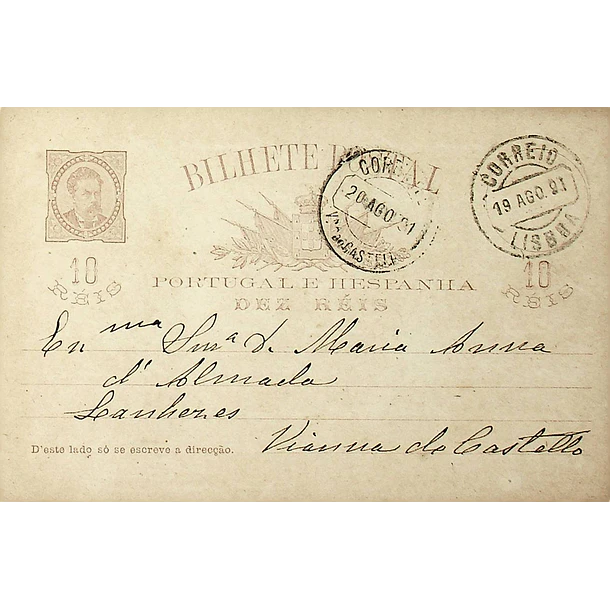 BILHETE POSTAL
CORREIO
20 AGO. 91
CORREIO
19 AGO. 91
LISBOA
10
RÉIS
PORTUGAL E HESPANHA
DEZ RÉIS
10
RÉIS
Exma Snra D. Maria Anna
d'Almada
Lanhezes
Vianna do Castello
D'este lado só se escreve a direcção.